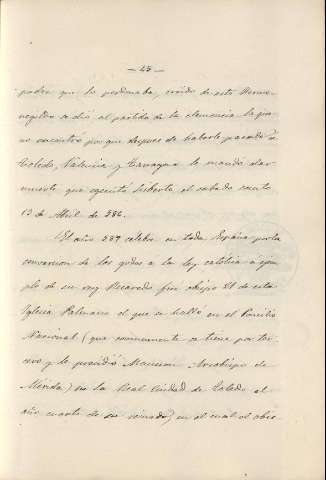 — 25 —
padre que le perdonaba, creido de esto Herme-
negildo se dió al partido de la clemencia la que
no encontró por que despues de haberle pasado á
Toledo, Valencia y Tarragona le mandó dar
muerte que egecutó Sisberto el sabado santo
13 de Abril de 586.
El año 589 célebre en toda España por la
conversion de los godos a la ley catolica á egem-
plo de su rey Recaredo fue obispo de esta
Iglesia Palmario el que se halló en el Concilio
Nacional (que comunmente se tiene por ter-
cero y le presidió Arzobispo de
Mérida) en la Real Ciudad de Toledo el
año cuarto de su reinado, en el cual el obis-